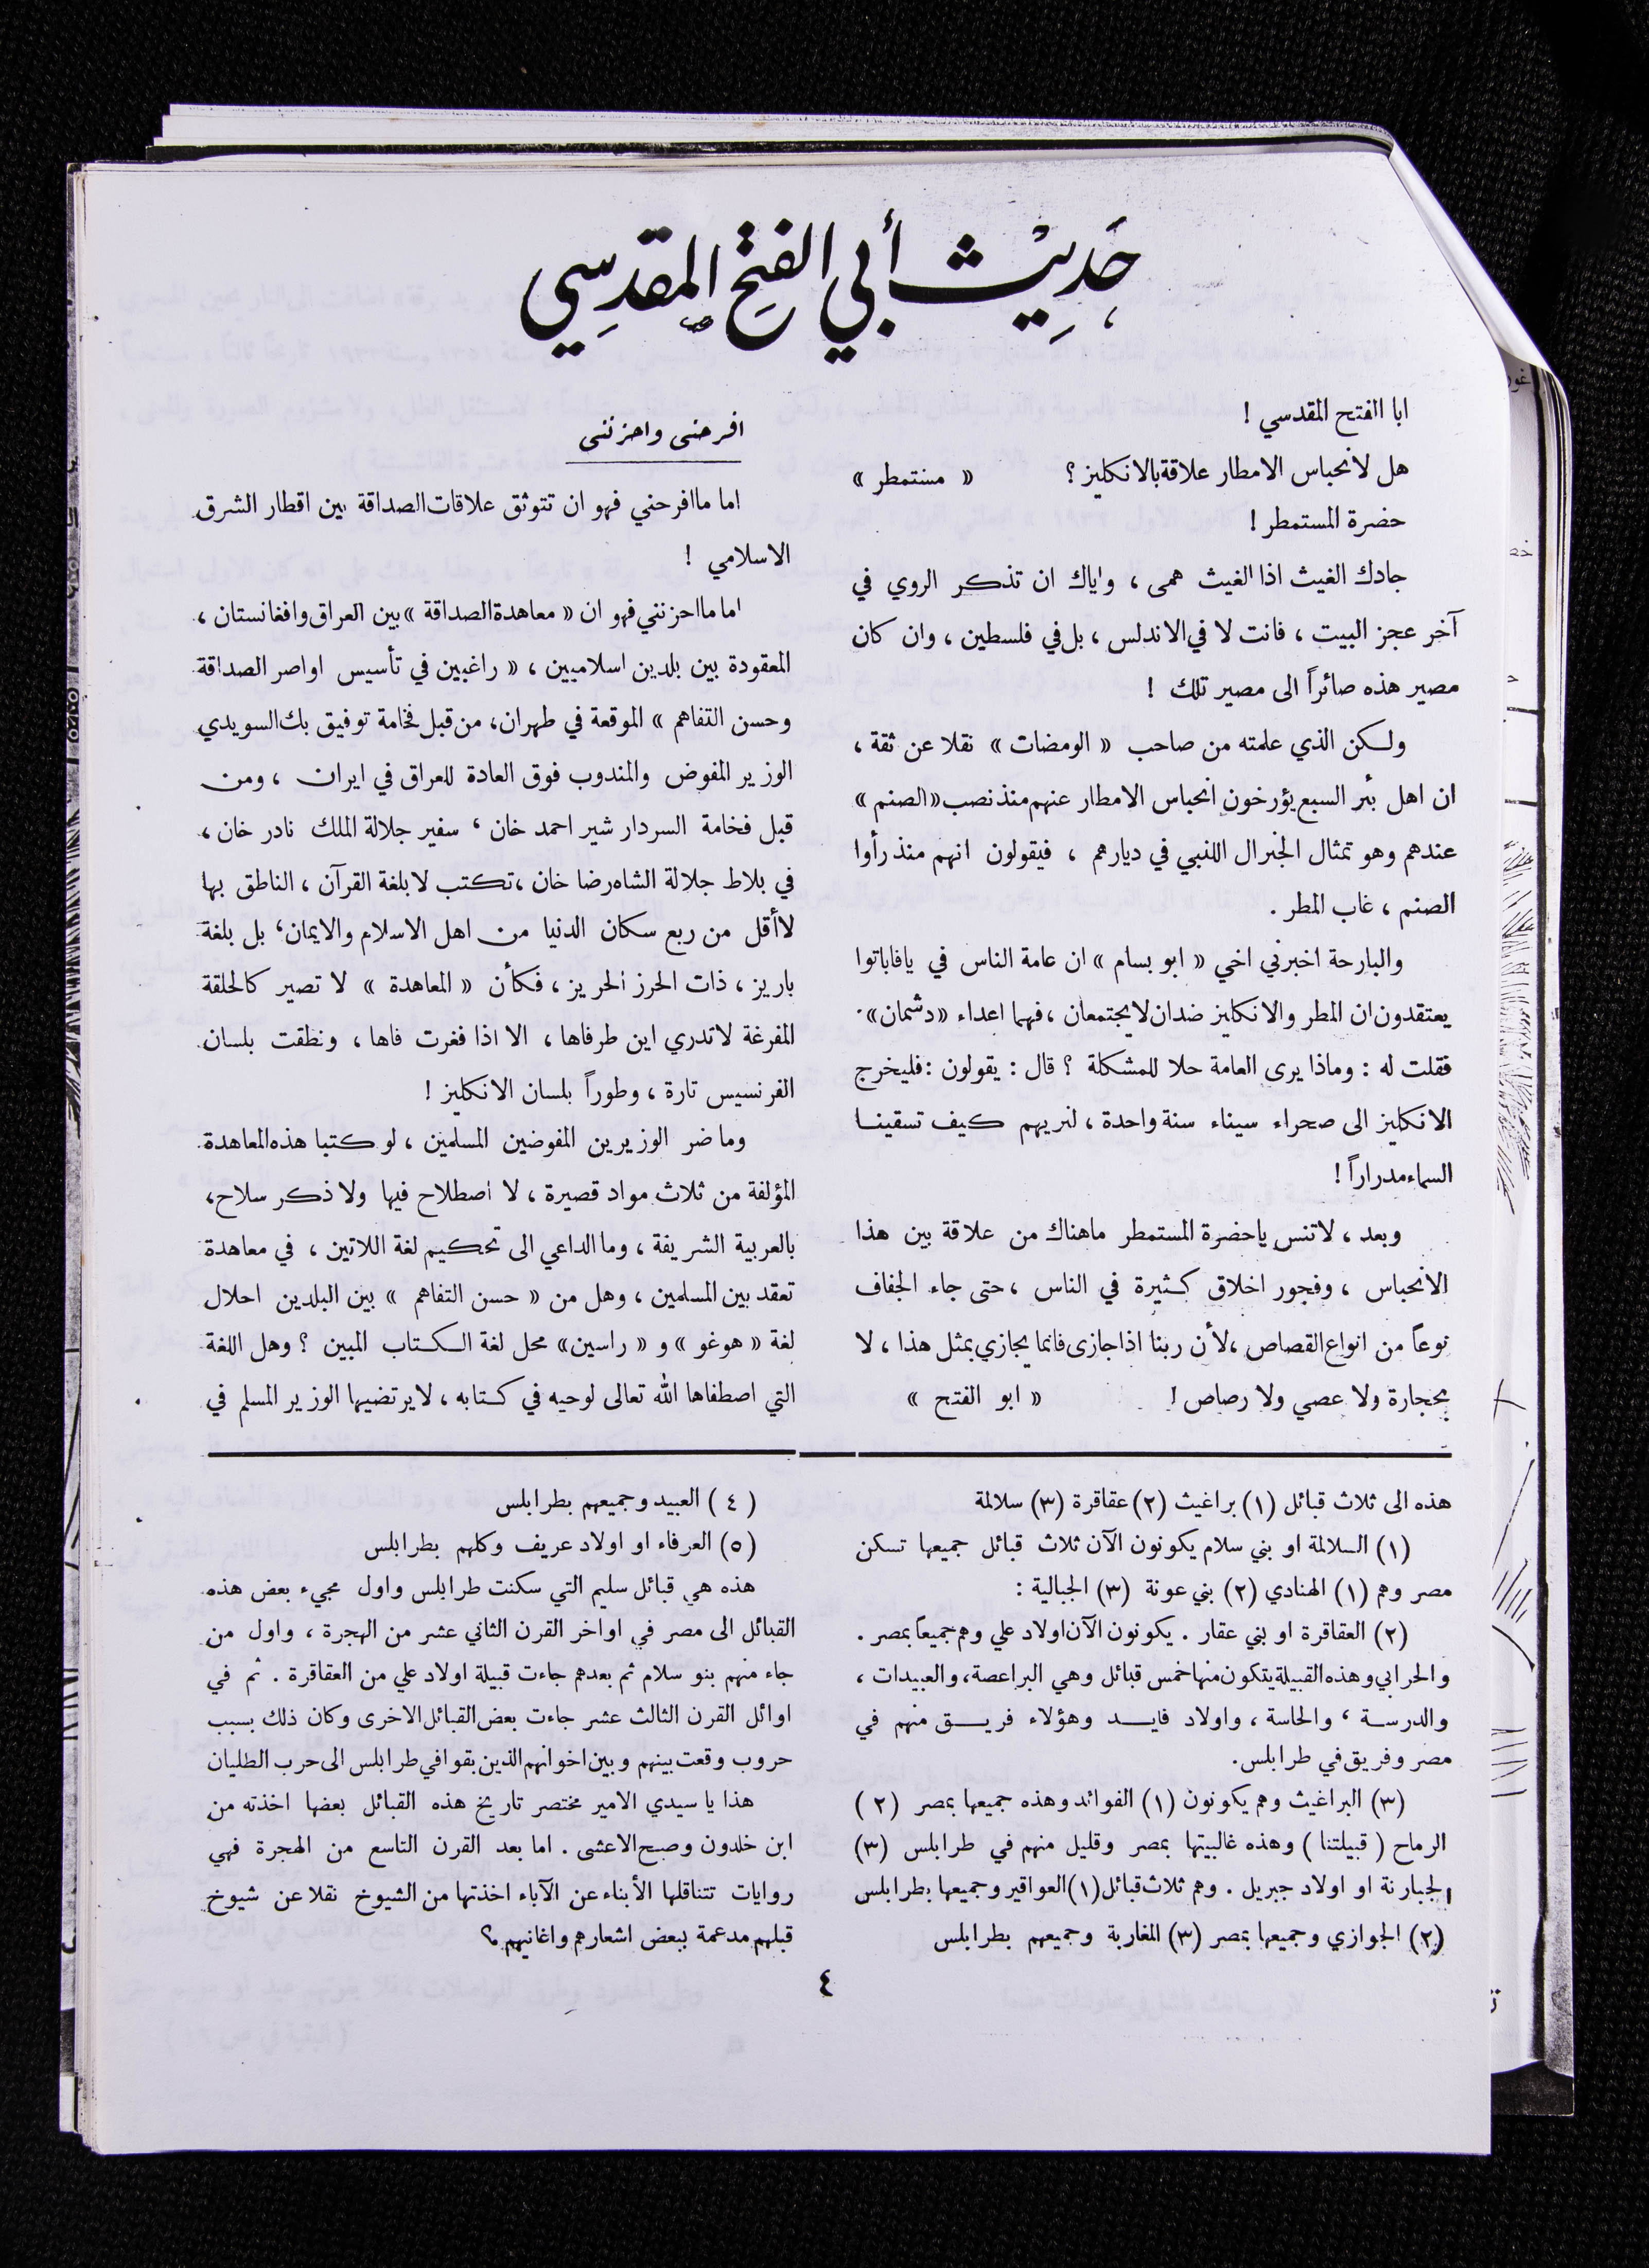 حَدِيْث أبي الفتح المقدسي
ابا الفتح المقدسي !
هل لانحباس الامطار علاقة بالانكليز ؟ « مستمطر »
حضرة المستمطر !
جادك الغيث اذا الغيث همى ، واياك ان تذكر الروي في
آخر عجز البيت ، فانت لا في الاندلس ، بل في فلسطين ، وان كان
مصير هذه صائراً الى مصير تلك !
ولكن الذي علمته من صاحب « الومضات » نقلا عن ثقة ،
ان اهل بئر السبع يؤرخون انحباس الامطار عنهم منذ نصب « الصنم »
عندهم وهو تمثال الجنرال اللنبي في ديارهم ، فيقولون انهم منذ رأوا
الصنم ، غاب المطر .
والبارحة اخبرني اخي « ابو بسام » ان عامة الناس في يافا باتوا
يعتقدون ان المطر والانكليز ضدان لا يجتمعان ، فهما اعداء « دشمان » .
فقلت له : وماذا يرى العامة حلا للمشكلة ؟ قال : يقولون : فليخرج
الانكليز الى صحراء سيناء سنة واحدة ، لنريهم كيف تسقينا
السماء مدراراً !
وبعد ، لا تنس يا حضرة المستمطر ما هناك من علاقة بين هذا
الانحباس ، وفجور اخلاق كثيرة في الناس ، حتى جاء الجفاف
نوعاً من انواع القصاص ، لأن ربنا اذا جازى فانما يجازي بمثل هذا ، لا
بحجارة ولا عصي ولا رصاص ! « ابو الفتح »
افرحنى واحزننى
اما ما افرحني فهو ان تتوثق علاقات الصداقة بين اقطار الشرق
الاسلامي !
اما ما احزنني فهو ان « معاهدة الصداقة » بين العراق وافغانستان ،
المعقودة بين بلدين اسلاميين ، « راغبين في تأسيس اواصر الصداقة
وحسن التفاهم » الموقعة في طهران ، من قبل فخامة توفيق بك السويدي
الوزير المفوض والمندوب فوق العادة للعراق في ايران ، ومن
قبل فخامة السردار شير احمد خان ، سفير جلالة الملك نادر خان ،
في بلاط جلالة الشاه رضا خان ، تكتب لا بلغة القرآن ، الناطق بها
لا أقل من ربع سكان الدنيا من اهل الاسلام والايمان ، بل بلغة
باريز ، ذات الحرز الحريز ، فكأن « المعاهدة » لا تصير كالحلقة
المفرغة لا تدري اين طرفاها ، الا اذا فغرت فاها ، ونطقت بلسان
الفرنسيس تارة ، وطوراً بلسان الانكليز !
وما ضر الوزيرين المفوضين المسلمين ، لو كتبا هذه المعاهدة
المؤلفة من ثلاث مواد قصيرة ، لا اصطلاح فيها ولا ذكر سلاح ،
بالعربية الشريفة ، وما الداعي الى تحكيم لغة اللاتين ، في معاهدة
تعقد بين المسلمين ، وهل من « حسن التفاهم » بين البلدين احلال
لغة « هوغو » و « راسين » محل لغة الكتاب المبين ؟ وهل اللغة
التي اصطفاها الله تعالى لوحيه في كتابه ، لا يرتضيها الوزير المسلم في
هذه الى ثلاث قبائل (١) براغيث (٢) عقاقرة (٣) سلالمة
(١) السلالمة او بني سلام يكونون الآن ثلاث قبائل جميعها تسكن
مصر وهم (١) الهنادي (٢) بني عونة (٣) الجبالية :
(٢) العقاقرة او بني عقار . يكونون الآن اولاد علي وهم جميعاً بمصر .
والحرابي وهذه القبيلة يتكون منها خمس قبائل وهي البراعصة ، والعبيدات ،
والدرسة ، والحاسة ، واولاد فايد وهؤلاء فريق منهم في
مصر وفريق في طرابلس .
(٣) البراغيث وهم يكونون (١) الفوائد وهذه جميعها بمصر (٢)
الرماح ( قبيلتنا ) وهذه غالبيتها بمصر وقليل منهم في طرابلس (٣)
الجبارنة او اولاد جبريل . وهم ثلاث قبائل (١) العواقير وجميعها بطرابلس
(٢) الجوازي وجميعها بمصر (٣) المغاربة وجميعهم بطرابلس
(٤) العبيد وجميعهم بطرابلس
(٥) العرفاء او اولاد عريف وكلهم بطرابلس
هذه هي قبائل سليم التي سكنت طرابلس واول مجيء بعض هذه
القبائل الى مصر في اواخر القرن الثاني عشر من الهجرة ، واول من
جاء منهم بنو سلام ثم بعدهم جاءت قبيلة اولاد علي من العقاقرة . ثم في
اوائل القرن الثالث عشر جاءت بعض القبائل الاخرى وكان ذلك بسبب
حروب وقعت بينهم وبين اخوانهم الذين بقوا في طرابلس الى حرب الطليان
هذا يا سيدي الامير مختصر تاريخ هذه القبائل بعضها اخذته من
ابن خلدون وصبح الاعشى . اما بعد القرن التاسع من الهجرة فهي
روايات تتناقلها الأبناء عن الآباء اخذتها من الشيوخ نقلا عن شيوخ
قبلهم مدعمة ببعض اشعارهم واغانيهم ؟
٤